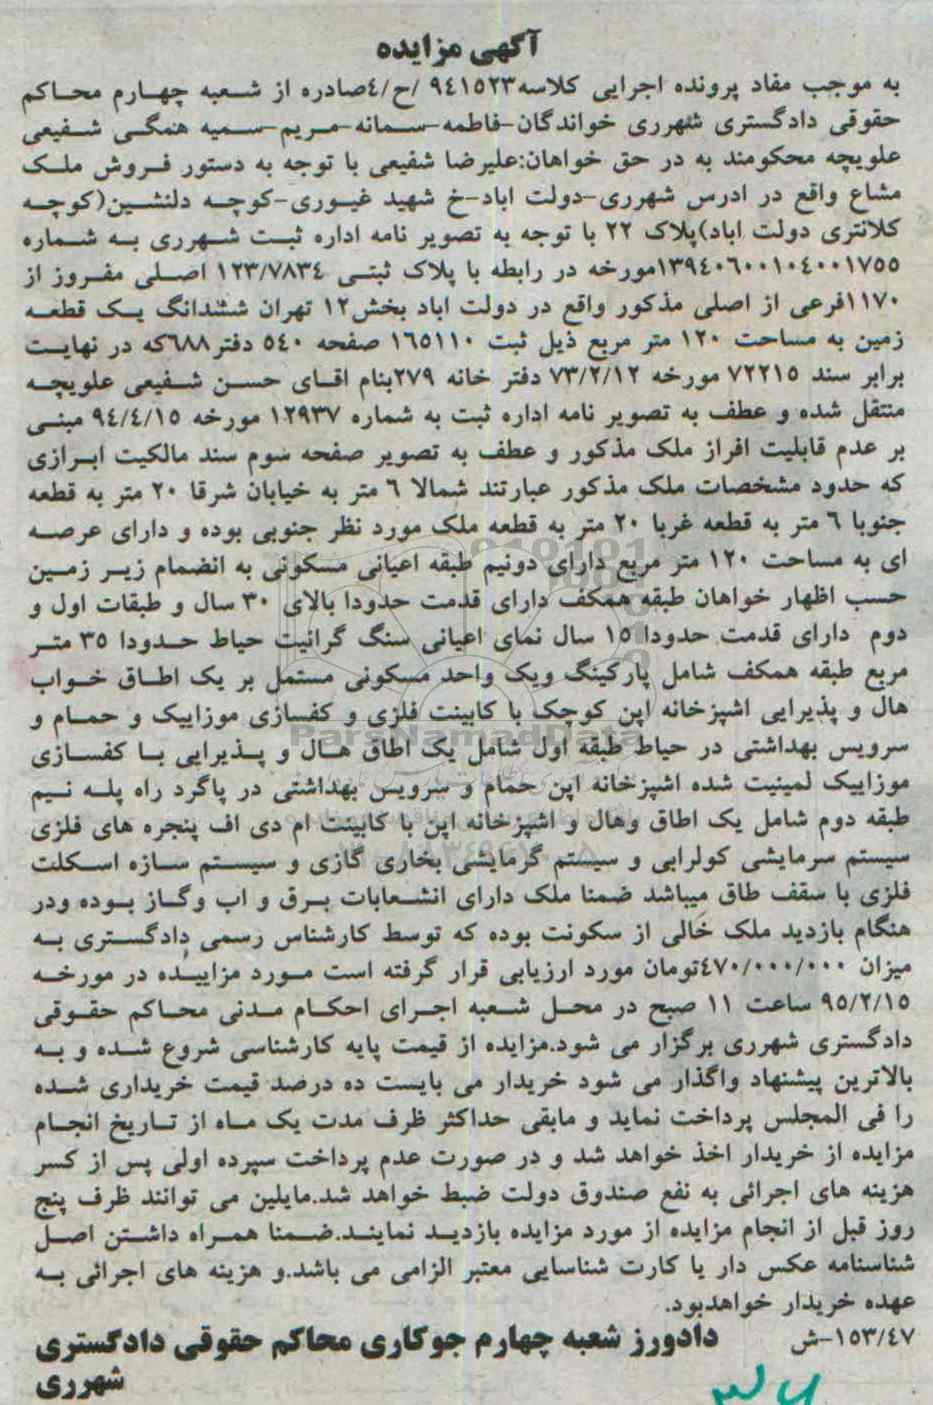 آگهی مزایده
به موجب مفاد پرونده اجرایی کلاسه۹٤۱۵۲۳ /ح/٤صادره از شعبه چهارم محاکم
حقوقی دادگستری شهرری خواندگان-فاطمه-سمانه-مریم-سمیه همگی شفیعی
علویچه محکومند به در حق خواهان:علیرضا شفیعی با توجه به دستور فروش ملک
مشاع واقع در ادرس شهرری-دولت اباد-خ شهید غیوری-کوچه دلنشین(کوچه
کلانتری دولت اباد)پلاک ۲۲ با توجه به تصویر نامه اداره ثبت شهرری به شماره
۱۳۹٤۰٦۰۰۱۰٤۰۰۱۷۵۵مورخه در رابطه با پلاک ثبتی ۱۲۳/۷۸۳٤ اصلی مفروز از
۱۱۷۰فرعی از اصلی مذکور واقع در دولت اباد بخش۱۲ تهران ششدانگ یک قطعه
زمین به مساحت ۱۲۰ متر مربع ذیل ثبت ۱٦۵۱۱۰ صفحه ۵٤۰ دفتر٦۸۸که در نهایت
برابر سند ۷۲۲۱۵ مورخه ۷۳/۲/۱۲ دفتر خانه ۲۷۹بنام اقای حسن شفیعی علویچه
منتقل شده و عطف به تصویر نامه اداره ثبت به شماره ۱۲۹۳۷ مورخه ۹٤/٤/۱۵ مبنی
بر عدم قابلیت افراز ملک مذکور و عطف به تصویر صفحه سوم سند مالکیت ابرازی
که حدود مشخصات ملک مذکور عبارتند شمالا ٦ متر به خیابان شرقا ۲۰ متر به قطعه
جنوبا ٦ متر به قطعه غربا ۲۰ متر به قطعه ملک مورد نظر جنوبی بوده و دارای عرصه
ای به مساحت ۱۲۰ متر مربع دارای دونیم طبقه اعیانی مسکونی به انضمام زیر زمین
حسب اظهار خواهان طبقه همکف دارای قدمت حدودا بالای ۳۰ سال و طبقات اول و
دوم دارای قدمت حدودا ۱۵ سال نمای اعیانی سنگ گرانیت حیاط حدودا ۳۵ متر
مربع طبقه همکف شامل پارکینگ ویک واحد مسکونی مستمل بر یک اطاق خواب
هال و پذیرایی اشپزخانه اپن کوچک با کابینت فلزی و کفسازی موزاییک و حمام و
ParsNamadData
سرویس بهداشتی در حیاط طبقه اول شامل یک اطاق هال و پذیرایی با کفسازی
موزاییک لمینیت شده اشپزخانه اپن حمام و سرویس بهداشتی در پاگرد راه پله نیم
طبقه دوم شامل یک اطاق وهال و اشپزخانه اپن با کابینت ام دی اف پنجره های فلزی
سیستم سرمایشی کولرابی و سیستم گرمایشی بخاری گازی و سیستم سازه اسکلت
فلزی با سقف طاق میباشد ضمنا ملک دارای انشعابات برق و اب وگاز بوده ودر
هنگام بازدید ملک خالی از سکونت بوده که توسط کارشناس رسمی دادگستری به
میزان ٤۷۰/۰۰۰/۰۰۰تومان مورد ارزیابی قرار گرفته است مورد مزاییده در مورخه
۹۵/۲/۱۵ ساعت ۱۱ صبح در محل شعبه اجرای احکام مدنی محاکم حقوقی
دادگستری شهرری برگزار می شود.مزایده از قیمت پایه کارشناسی شروع شده و به
بالاترین پیشنهاد واگذار می شود خریدار می بایست ده درصد قیمت خریداری شده
را فی المجلس پرداخت نماید و مابقی حداکثر ظرف مدت یک ماه از تاریخ انجام
مزایده از خریدار اخذ خواهد شد و در صورت عدم پرداخت سپرده اولی پس از کسر
هزینه های اجرائی به نفع صندوق دولت ضبط خواهد شد.مایلین می توانند ظرف پنج
روز قبل از انجام مزایده از مورد مزایده بازدید نمایند.ضمنا همراه داشتن اصل
شناسنامه عکس دار یا کارت شناسایی معتبر الزامی می باشد.و هزینه های اجرائی به
عهده خریدار خواهدبود.
۱۵۳/٤۷-ش
دادورز شعبه چهارم جوکاری محاکم حقوقی دادگستری
شهرری